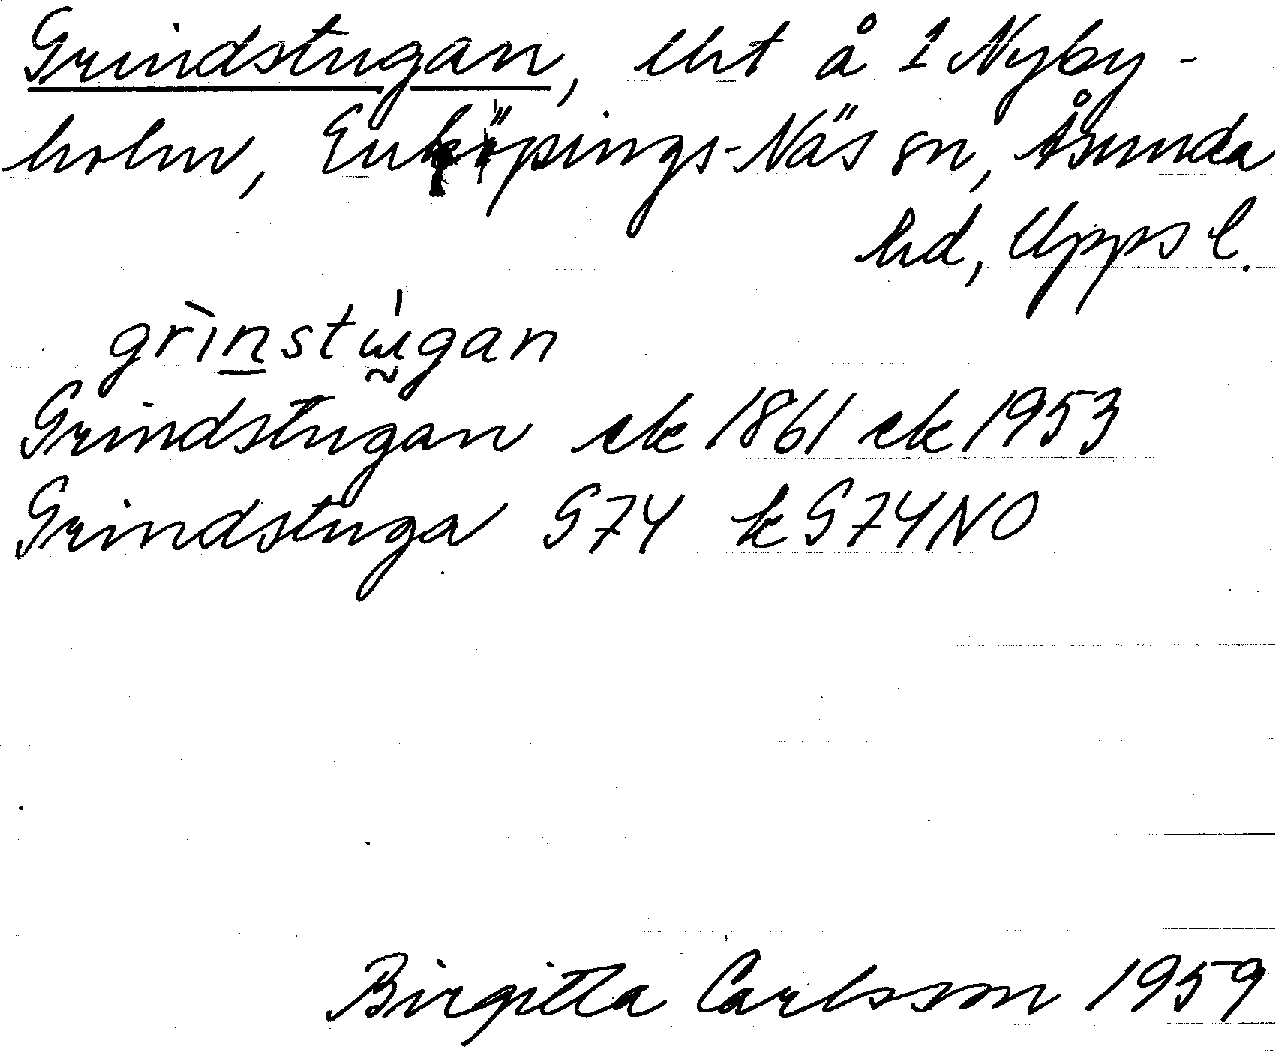 Grindstugan, lht å 1 Nyby-
holm, Enköpings-Näs sn, Åsunda
hd, Upps l.
grìnstẁgan
Grindstugan ek 1861 ek 1953
Grindstuga G74 k G74NO
Birgitta Carlsson 1959